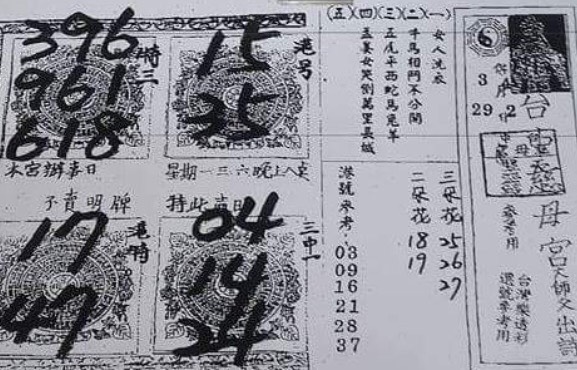 (五)(四)(三)(二)(一)
女人洗衣
千馬相鬥不分開
五虎平西蛇馬兔羊
孟姜女哭倒萬里長城
港号
15
35
特三
396
961
618
星期一三六晚上八
本宮辦事日
不賣明牌
三中一
04
14
24
港特
17
47
三朵花 25 26 27
二朵花 18 19
港號參考:
03
09
16
21
28
37
6
3月
29日
2
台
母宮天師父出詩
參考用
台灣樂透彩
選號參考用